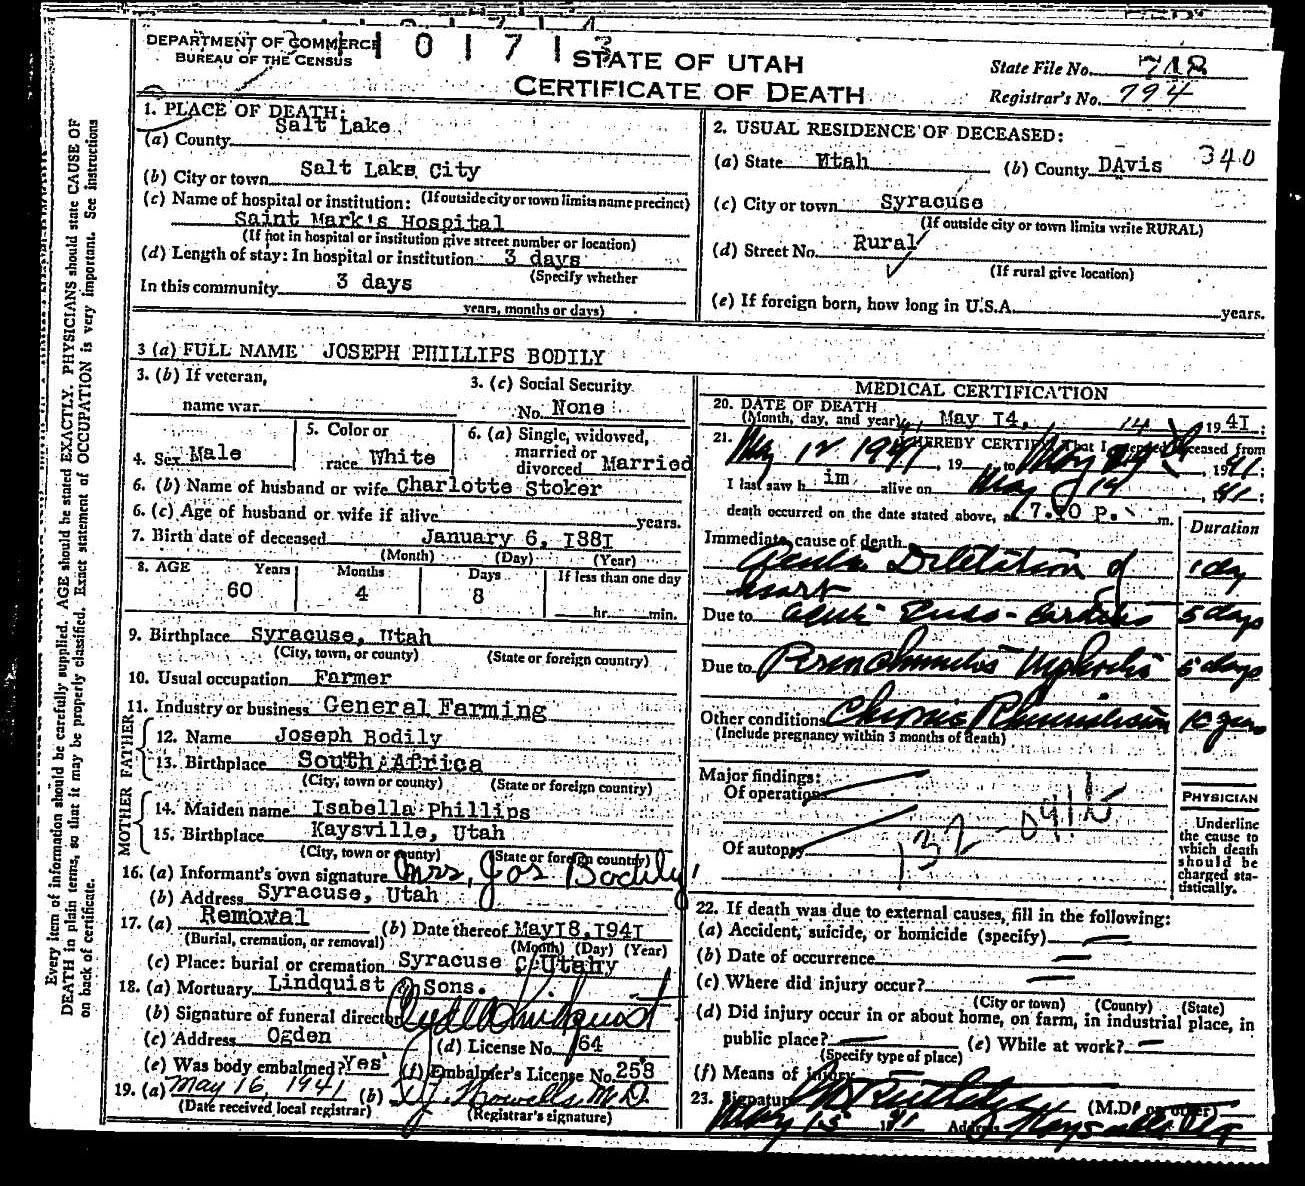 DEPARTMENT OF COMMERCE
BUREAU OF THE CENSUS
1 0 1 7 1 3
STATE OF UTAH
CERTIFICATE OF DEATH
State File No. 718
Registrar's No. 794
1. PLACE OF DEATH:
(a) County Salt Lake
(b) City or town Salt Lake City
(c) Name of hospital or institution: (If outside city or town limits name precinct)
Saint Mark's Hospital
(If not in hospital or institution give street number or location)
(d) Length of stay: In hospital or institution 3 days
(Specify whether
In this community 3 days
years, months or days)
2. USUAL RESIDENCE OF DECEASED:
(a) State Utah (b) County DAvis 340
(c) City or town Syracuse
(If outside city or town limits write RURAL)
(d) Street No. Rural
(If rural give location)
(e) If foreign born, how long in U.S.A. years.
3 (a) FULL NAME JOSEPH PHILLIPS BODILY
3. (b) If veteran,
name war
3. (c) Social Security
No. None
4. Sex Male
5. Color or
race White
6. (a) Single, widowed,
married or
divorced Married
6. (b) Name of husband or wife Charlotte Stoker
6. (c) Age of husband or wife if alive years.
7. Birth date of deceased January 6, 1881
(Month) (Day) (Year)
8. AGE Years Months Days If less than one day
60 4 8 hr. min.
9. Birthplace Syracuse, Utah
(City, town, or county) (State or foreign country)
10. Usual occupation Farmer
11. Industry or business General Farming
FATHER
12. Name Joseph Bodily
13. Birthplace South Africa
(City, town or county) (State or foreign country)
MOTHER
14. Maiden name Isabella Phillips
15. Birthplace Kaysville, Utah
(City, town or county) (State or foreign country)
16. (a) Informant's own signature Mrs. Jos Bodily
(b) Address Syracuse, Utah
17. (a) Removal (b) Date thereof May 18, 1941
(Burial, cremation, or removal) (Month) (Day) (Year)
(c) Place: burial or cremation Syracuse Utah
18. (a) Mortuary Lindquist & Sons.
(b) Signature of funeral director Lindquist
(c) Address Ogden (d) License No. 64
(e) Was body embalmed? Yes (f) Embalmer's License No. 258
19. (a) May 16, 1941 (b) Howells, M.D.
(Date received local registrar) (Registrar's signature)
MEDICAL CERTIFICATION
20. DATE OF DEATH
(Month, day, and year) May 14, 1941;
21. I HEREBY CERTIFY That I attended deceased from
May 12 1941, 19 , to May 14, 1941;
I last saw h im alive on May 14, 1941;
death occurred on the date stated above, at 7.20 P. m.
Duration
Immediate cause of death
Acute Diletation of 1 day
heart
Due to acute Endo-Carditis 5 days
Due to Perenchmatis Nephritis 5 days
Other conditions Chronic Rhumitism 10 years
(Include pregnancy within 3 months of death)
Major findings:
Of operations
Of autopsy
PHYSICIAN
Underline
the cause to
which death
should be
charged sta-
tistically.
22. If death was due to external causes, fill in the following:
(a) Accident, suicide, or homicide (specify)
(b) Date of occurrence
(c) Where did injury occur?
(City or town) (County) (State)
(d) Did injury occur in or about home, on farm, in industrial place, in
public place? (e) While at work?
(Specify type of place)
(f) Means of injury
23. Signature Rutledge (M.D. or other)
May 15 1941 Address Kaysville Ut
Every item of information should be carefully supplied. AGE should be stated EXACTLY. PHYSICIANS should state CAUSE OF
DEATH in plain terms, so that it may be properly classified. Exact statement of OCCUPATION is very important. See instructions
on back of certificate.